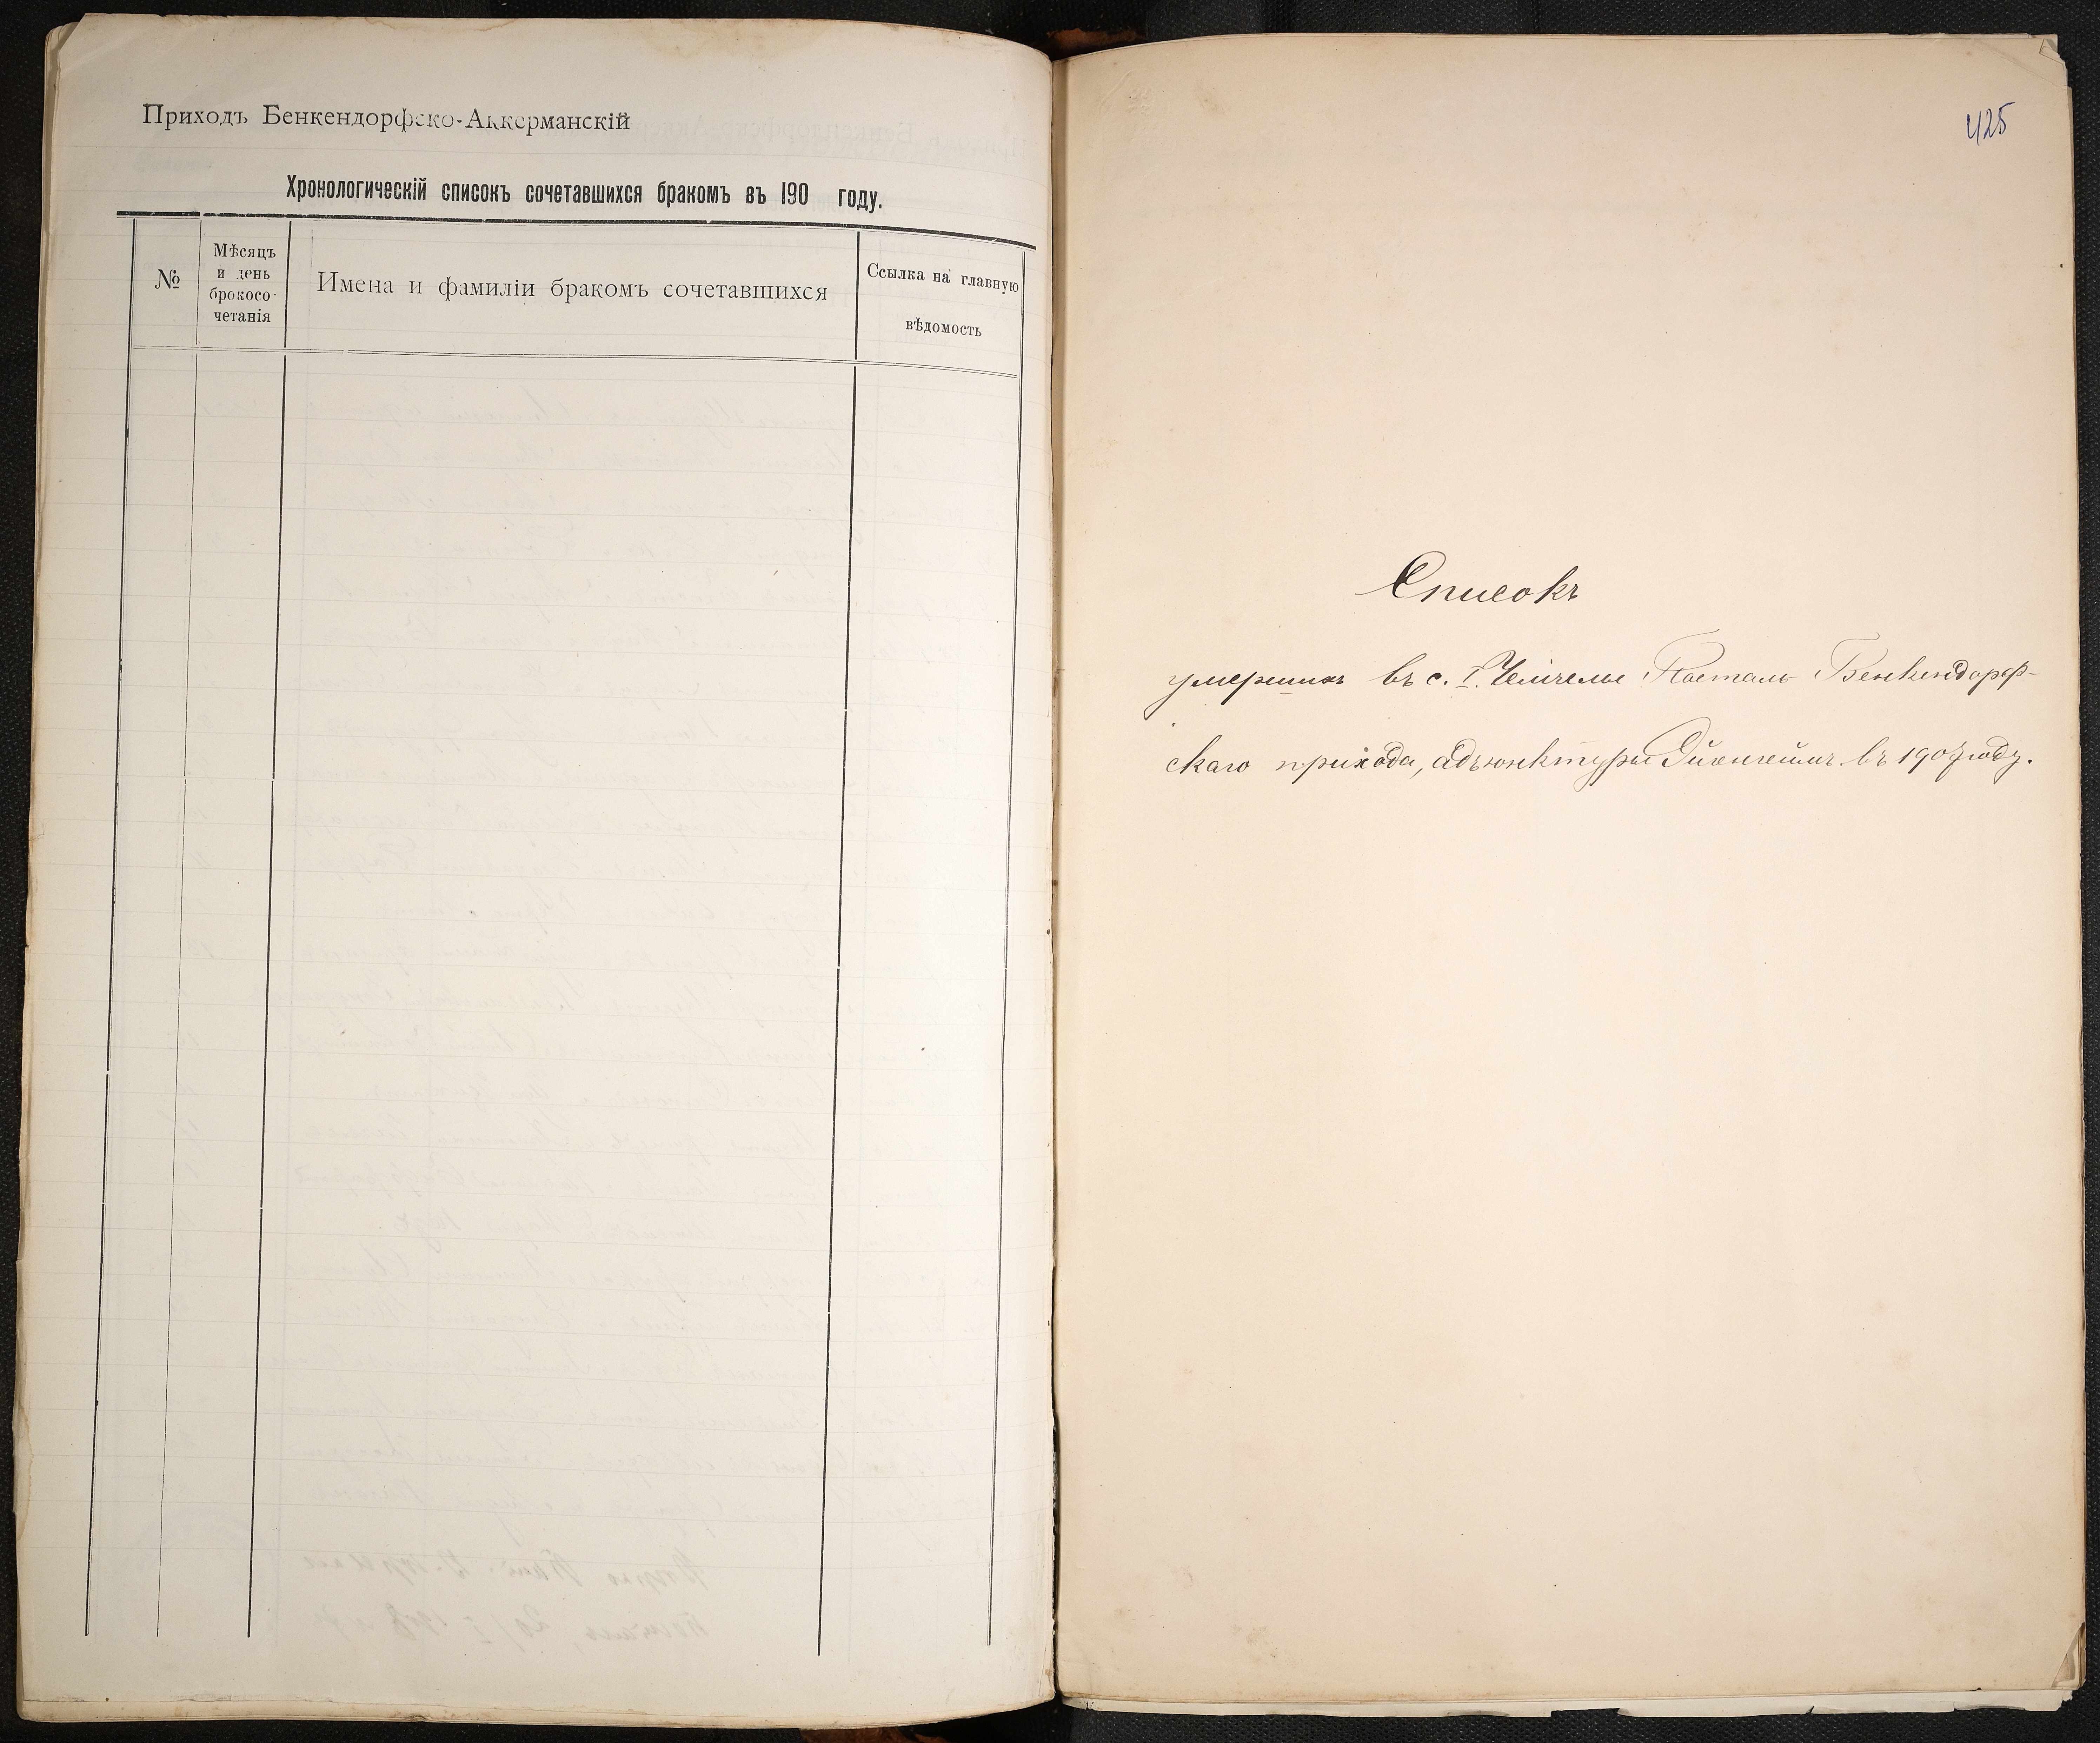 Приходъ Бенкендорфско-Аккерманскій
Хронологическій списокъ сочетавшихся бракомъ въ 190 году.
№
Мѣсяцъ
и день
брокосо-
четанія
Имена и фамиліи бракомъ сочетавшихся
Ссылка на главную
вѣдомость
425
Списокъ
умершихъ въ с. I. Чемчелы Посталь Бенкендорф-
скаго прихода, адъюнктуры Эйхенгеймъ въ 1907 году.